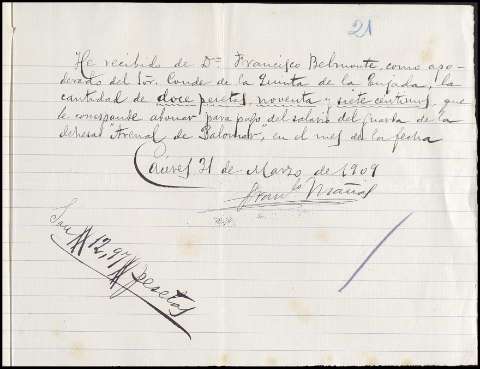 21
He recibido de Dn. Francisco Belmonte, como apo-
derado del Sor. Conde de la Quinta de la Enjarada, la
cantidad de doce pesetas, noventa y siete centimos, que
le corresponde abonar para pago del salario del guarda de la
dehesa "Arenal de Palomar", en el mes de la fecha
Cáceres 31 de Marzo de 1909
Son # 12,97 # pesetas